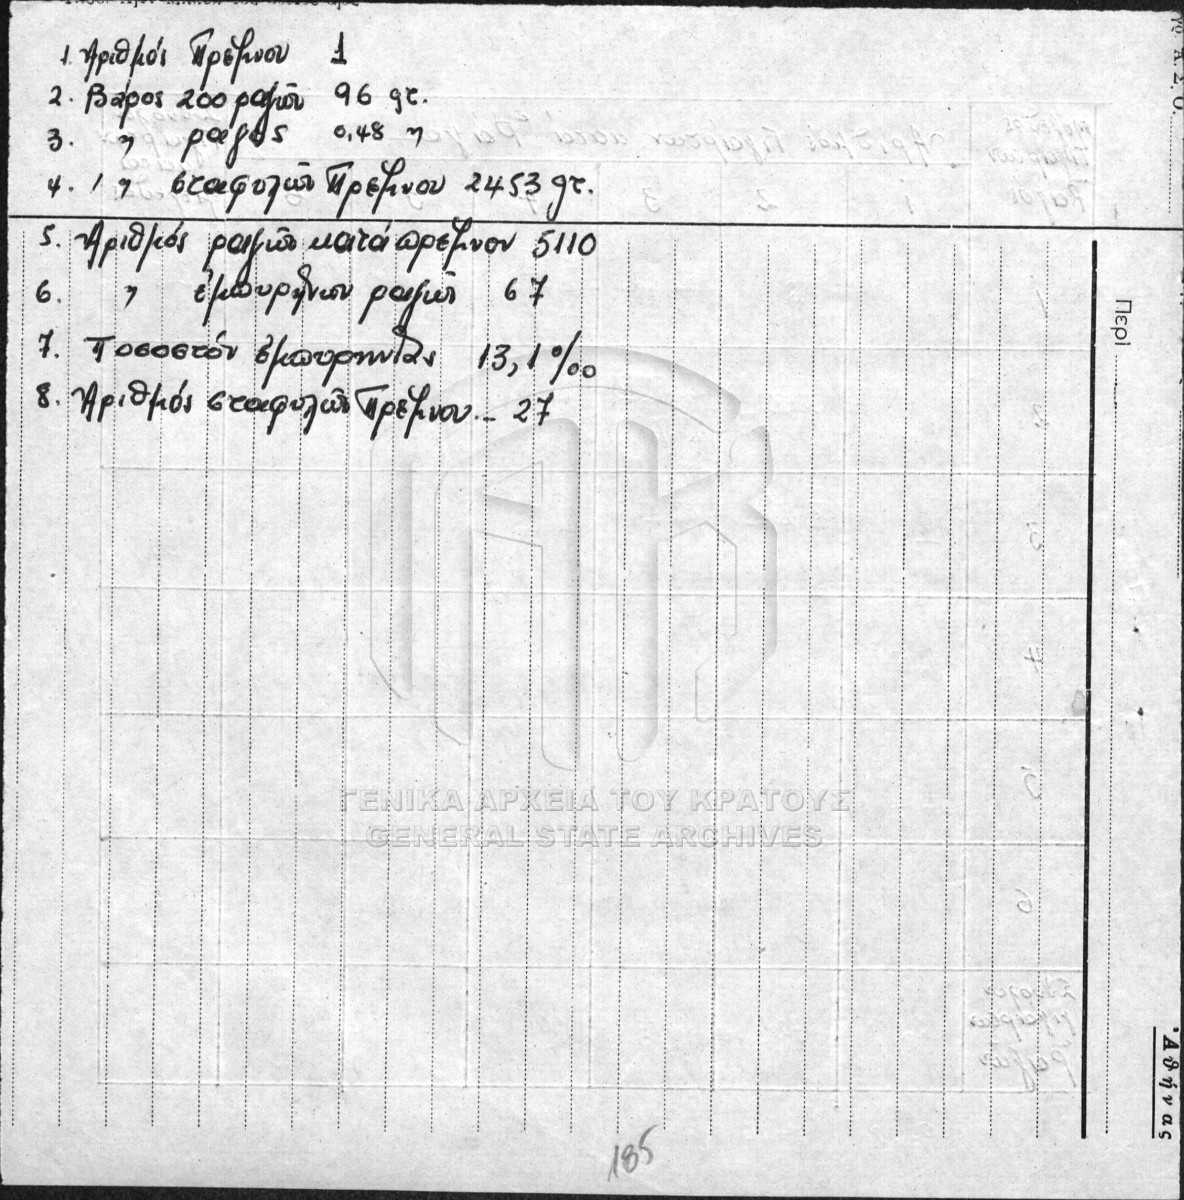 1. Ἀριθμός Πρέμνου 1
2. Βάρος 200 ραγῶν 96 gr.
3. 〃 ραγός 0,48 〃
4. 〃 σταφυλῶν Πρέμνου 2453 gr.
5. Ἀριθμός ραγῶν κατά πρέμνον 5110
6. 〃 ἐμπυρήνων ραγῶν 67
7. Ποσοστόν ἐμπυρηνίας 13,1‰
8. Ἀριθμός σταφυλῶν Πρέμνου.- 27
Περί
Ἀθήνας
ΓΕΝΙΚΑ ΑΡΧΕΙΑ ΤΟΥ ΚΡΑΤΟΥΣ
GENERAL STATE ARCHIVES
185